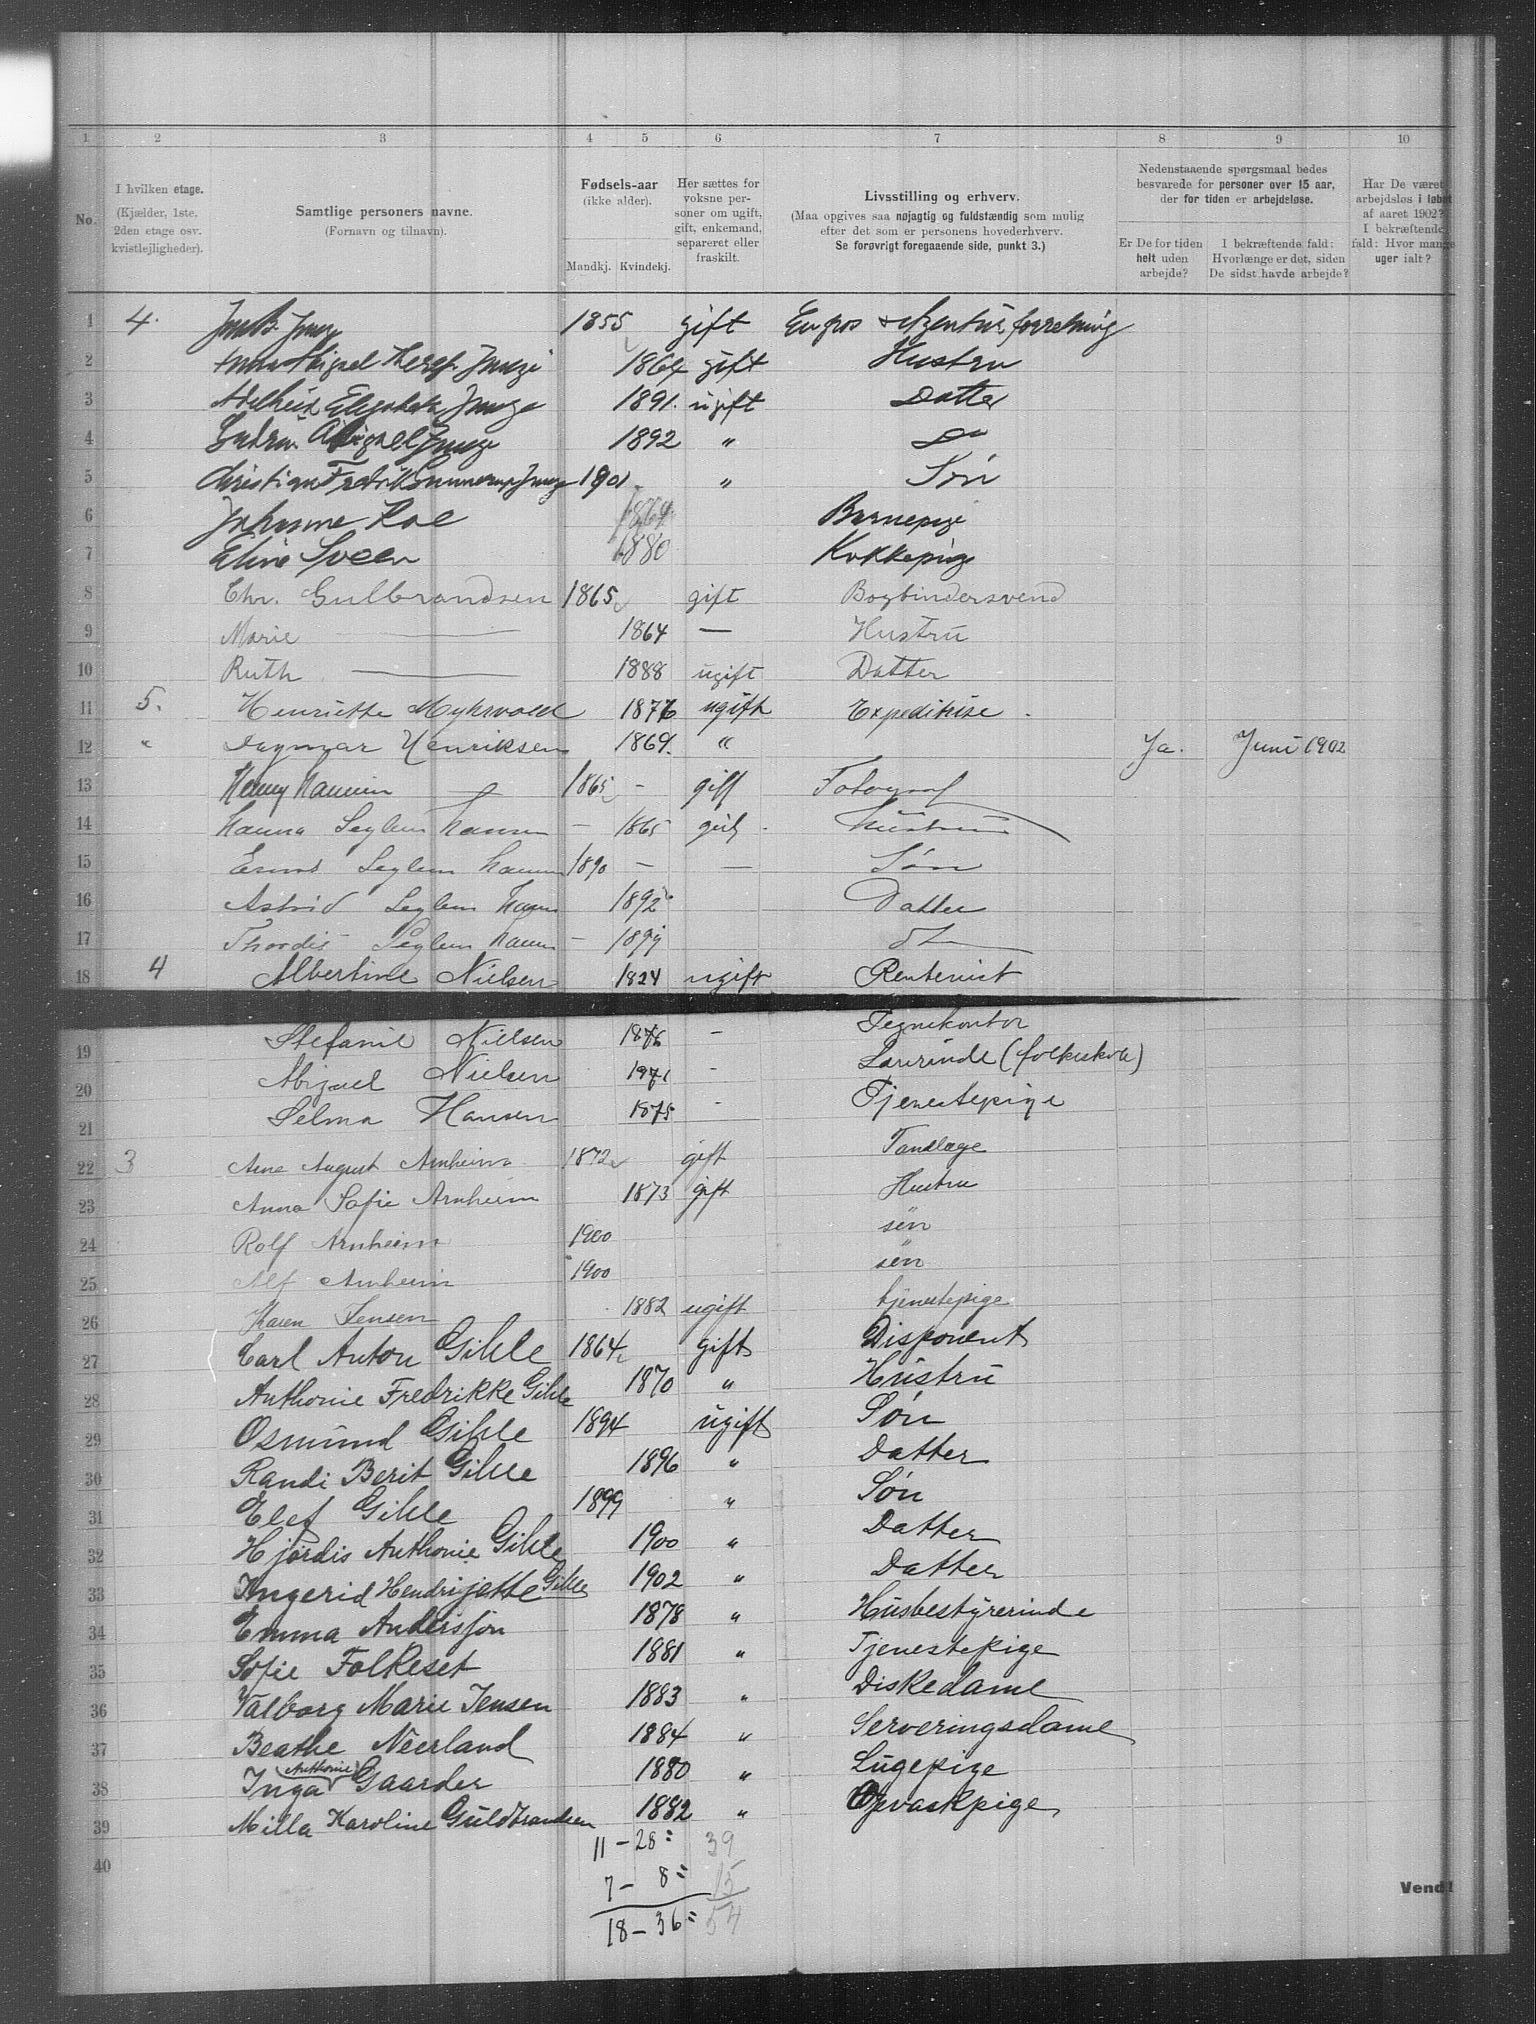 1 2 3 4 5 6 7 8 9 10
No.
I hvilken etage.
(Kjælder, 1ste, 2den etage osv. kvistlejligheder).
Samtlige personers navne.
(Fornavn og tilnavn).
Fødsels-aar
(ikke alder).
Mandkj. Kvindekj.
Her sættes for voksne personer om ugift, gift, enkemand, separeret eller fraskilt.
Livsstilling og erhverv.
(Maa opgives saa nøjagtig og fuldstændig som mulig efter det som er personens hovederhverv.
Se forøvrigt foregaaende side, punkt 3.)
Nedenstaaende spørgsmaal bedes besvarede for personer over 15 aar, der for tiden er arbejdsløse.
Er De for tiden helt uden arbejde?
I bekræftende fald: Hvorlænge er det, siden De sidst havde arbejde?
Har De været arbejdsløs i løbet af aaret 1902? I bekræftende fald: Hvor mange uger ialt?
1 4. 1855 gift Engros & Agentur forretning
2 1864 gift Hustru
3 Adelheid Elisabeth 1891. ugift Datter
4 1892 " Do
5 Christian Fredrik 1901 " Søn
6 Johanne Roe 1869 Barnepige
7 Eline Sveen 1880 Kokkepige
8 Chr. Gulbrandsen 1865 gift Bogbindersvend
9 Marie — 1864 — Hustru
10 Ruth — 1888 ugift Datter
11 5. Henriette Myhrvold 1876 ugift Expeditrise.
12 " Dagmar Henriksen 1869. " Ja. Juni 1902
13 1865 - gift Fotograf
14 Hanna Seglem Hansen — 1865 gift Hustru
15 Seglem Hansen 1890 — — Søn
16 Astrid Seglem Hansen 1892 Datter
17 Thordis Seglem Hansen — 1899 do
18 4 Albertine Nielsen 1824 ugift Rentenist
19 Stefanie Nielsen 1876 - Tegnekontor
20 Abigael Nielsen 1871 - Lærerinde (folkeskole)
21 Selma Hansen 1875 - Tjenestepige
22 3 Arne August Arnheim 1872 gift Tandlæge
23 Anna Sofie Arnheim 1873 gift Hustru
24 Rolf Arnheim 1900 søn
25 Alf Arnheim 1900 søn
26 Karen Jensen 1882 ugift tjenestepige
27 Carl Anton Gihle 1864 gift Disponent
28 Anthonie Fredrikke Gihle 1870 " Hustru
29 Osmund Gihle 1894 ugift Søn
30 Randi Berit Gihle 1896 " Datter
31 Elef Gihle 1899 " Søn
32 Hjørdis Anthonie Gihle 1900 " Datter
33 Ingerid Hendrijette Gihle 1902 " Datter
34 Emma Andersson 1878 " Husbestyrerinde
35 Sofie Folkeset 1881 " Tjenestepige
36 Valborg Marie Jensen 1883 " Diskedame
37 Beathe Neerland 1884 " Serveringsdame
38 Inga Anthonie Gaarder 1880 " Lugepige
39 Milla Karoline Guldbrandsen 1882 " Opvaskpige
40
11 - 28 = 39
7 - 8 = 15
18 - 36 = 54
Vend!